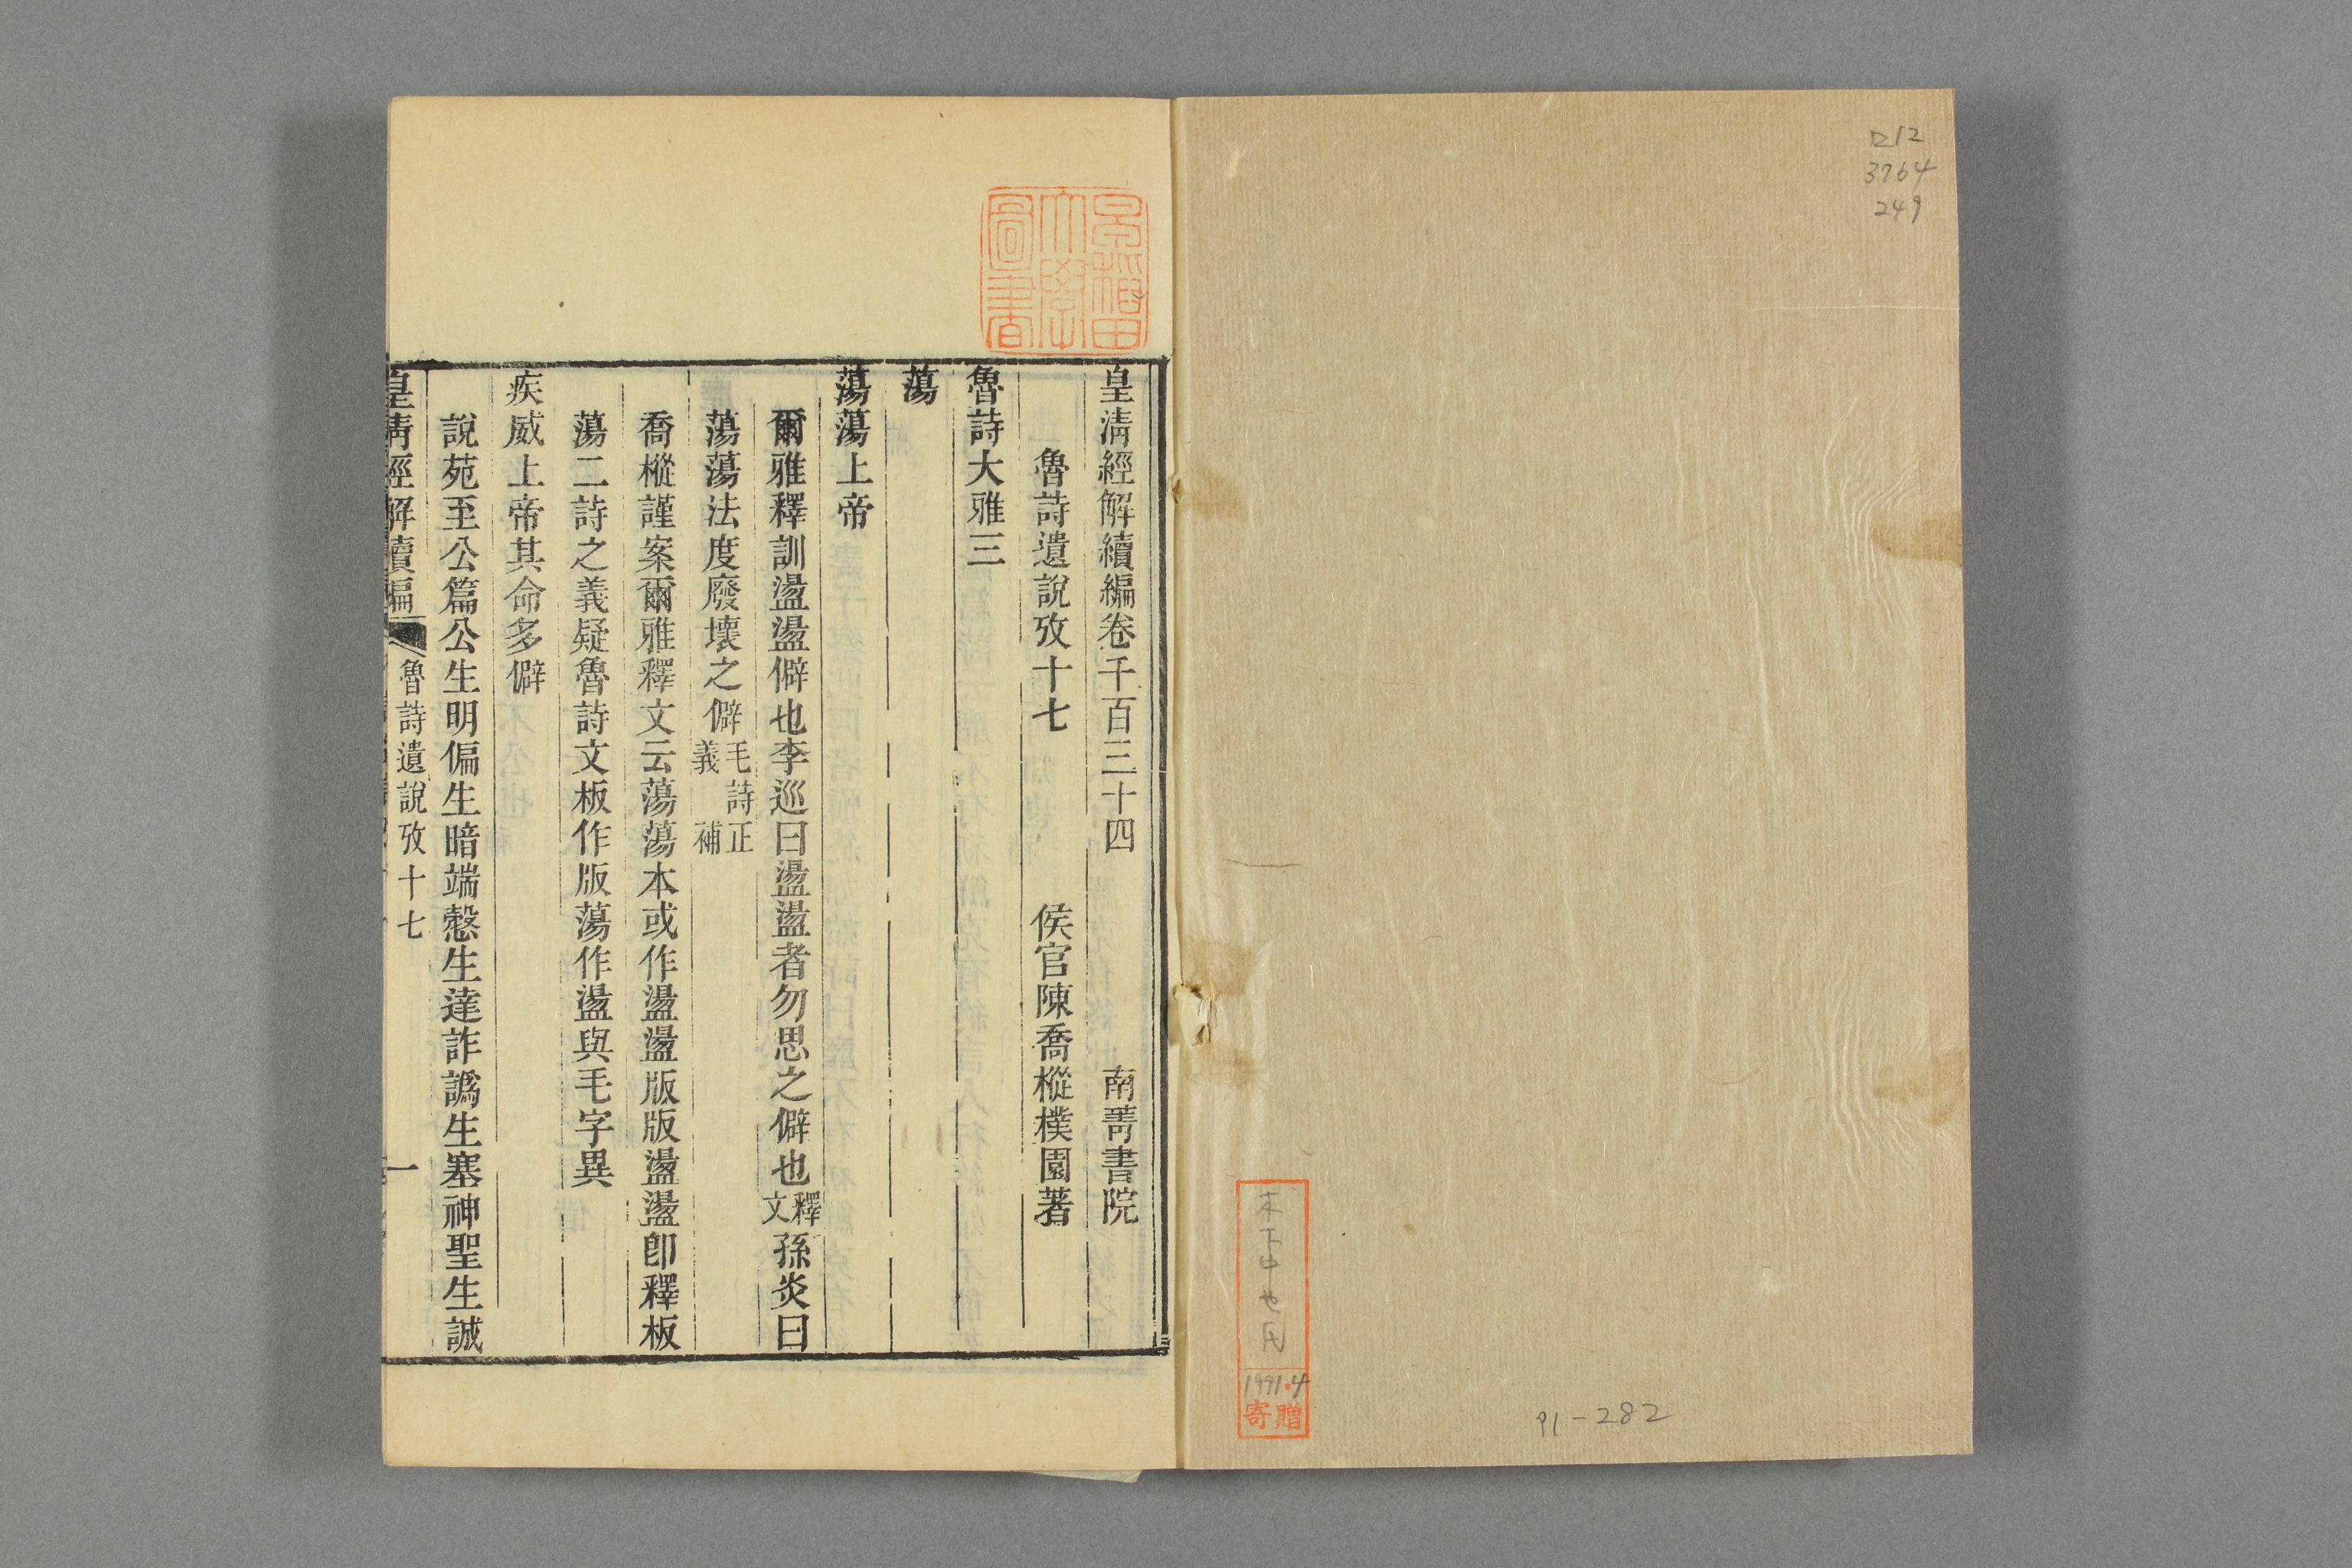 ロ12
3764
249
木下中也氏
1991.4
寄贈
91-282
早稲田大學圖書
皇清經解續編卷千百三十四 南菁書院
魯詩遺說攷十七 侯官陳喬樅樸園著
魯詩大雅三
蕩
蕩蕩上帝
爾雅釋訓盪盪僻也李巡曰盪盪者勿思之僻也釋文孫炎曰
蕩蕩法度廢壞之僻毛詩正義補
喬樅謹案爾雅釋文云蕩蕩本或作盪盪版版盪盪卽釋板
蕩二詩之義疑魯詩文板作版蕩作盪與毛字異
疾威上帝其命多僻
說苑至公篇公生明偏生暗端慤生達詐譌生塞神聖生誠
皇清經解續編 魯詩遺說攷十七 一